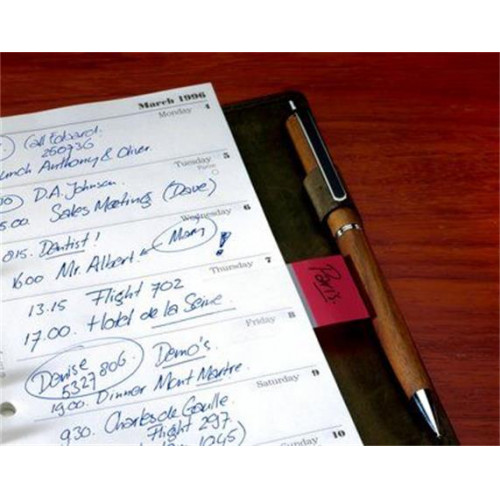 March 1996
Monday 4
Call Edward.
250736
Lunch Anthony & Oliver.
Tuesday 5
D.A. Johnson.
Sales Meeting (Dave)
Wednesday 6
815. Dentist!
1600 Mr. Albert Mary !
Thursday 7
13.15 Flight 702
17.00. Hotel de la Seine
Paris.
Friday 8
Denise 5327806. Demo's.
19.00. Dinner Mont Martre.
Saturday 9
930. Charles de Gaulle.
Flight 297.
1045)
10